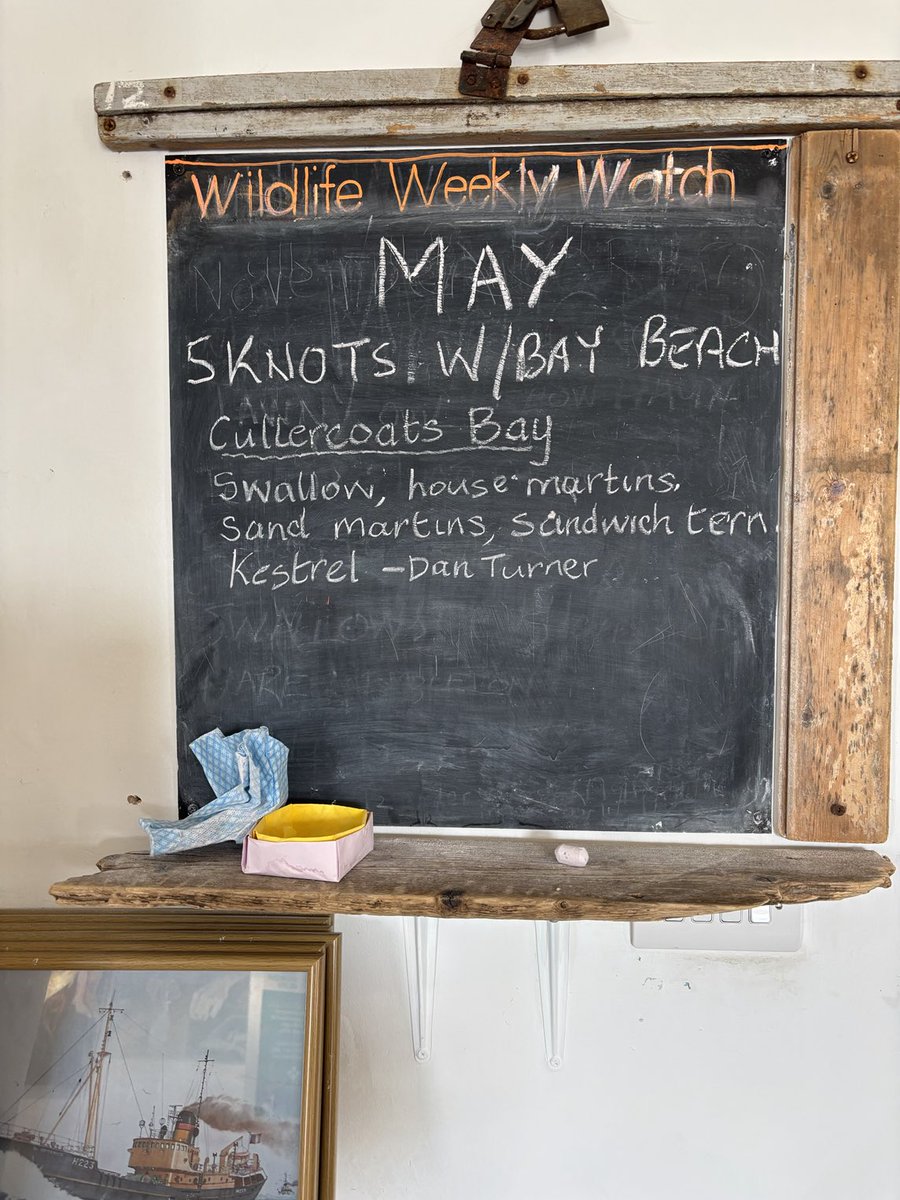 12
Wildlife Weekly Watch
MAY
5 KNOTS W/BAY BEACH
Cullercoats Bay
Swallow, house martins,
Sand martins, Sandwich tern
Kestrel - Dan Turner
H223